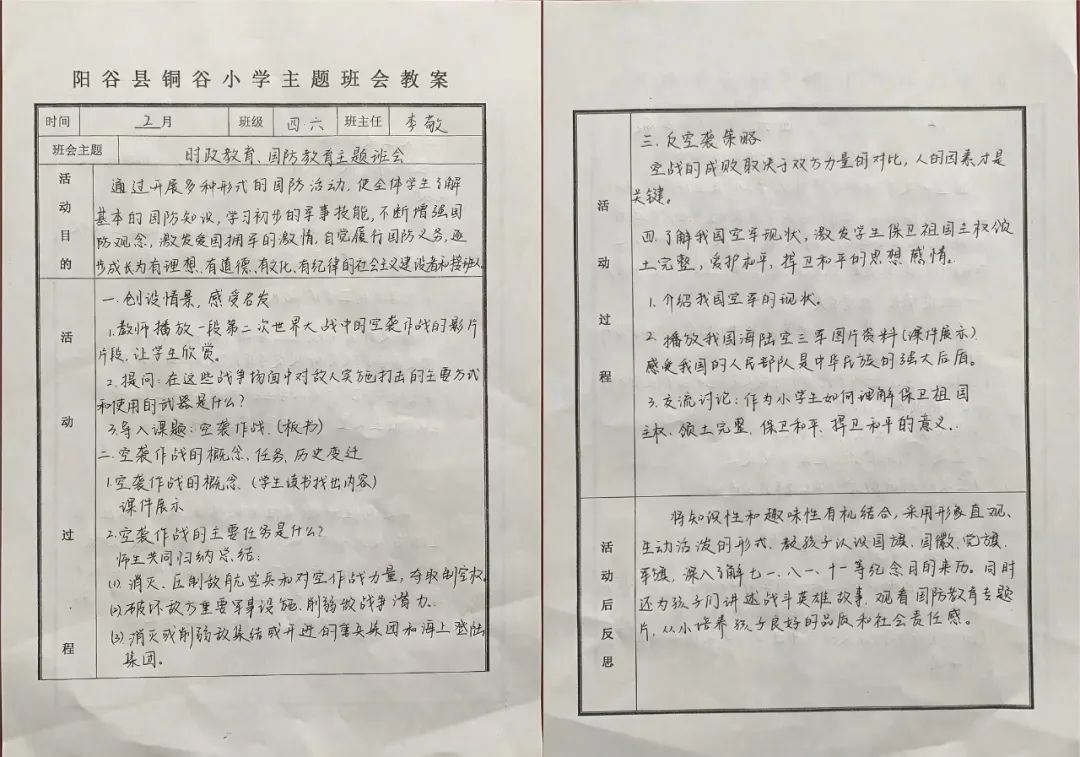 阳谷县铜谷小学主题班会教案
时间 2月 班级 四六 班主任 李敬
班会主题 时政教育、国防教育主题班会
活动目的
通过开展多种形式的国防活动,使全体学生了解
基本的国防知识,学习初步的军事技能,不断增强国
防观念,激发爱国拥军的激情,自觉履行国防义务,逐
步成长为有理想、有道德、有文化、有纪律的社会主义建设者和接班人
活动过程
一.创设情景,感受名发
1.教师播放一段第二次世界大战中的空袭作战的影片
片段,让学生欣赏。
2.提问:在这些战争场面中对敌人实施打击的主要方式
和使用的武器是什么?
3.导入课题:空袭作战.(板书)
二.空袭作战的概念、任务、历史变迁
1.空袭作战的概念.(学生读书找出内容)
课件展示
2.空袭作战的主要任务是什么?
师生共同归纳总结:
(1).消灭、压制敌航空兵和对空作战力量,夺取制空权.
(2).破坏敌方重要军事设施.削弱敌战争潜力.
(3).消灭或削弱敌集结或开进的重兵集团和海上登陆
集团。
活动过程
三.反空袭策略
空战的成败取决于双方力量的对比,人的因素才是
关键。
四.了解我国空军现状,激发学生保卫祖国主权领
土完整,爱护和平,捍卫和平的思想感情。
1.介绍我国空军的现状。
2.播放我国海陆空三军图片资料(课件展示)
感受我国的人民部队是中华民族的强大后盾。
3.交流讨论:作为小学生如何理解保卫祖国
主权、领土完整、保卫和平、捍卫和平的意义.
活动后反思
将知识性和趣味性有机结合,采用形象直观、
生动活泼的形式.教孩子认识国旗、国徽、党旗、
军旗,深入了解七一、八一、十一等纪念日的来历。同时
还为孩子们讲述战斗英雄故事.观看国防教育专题
片,从小培养孩子良好的品质和社会责任感。